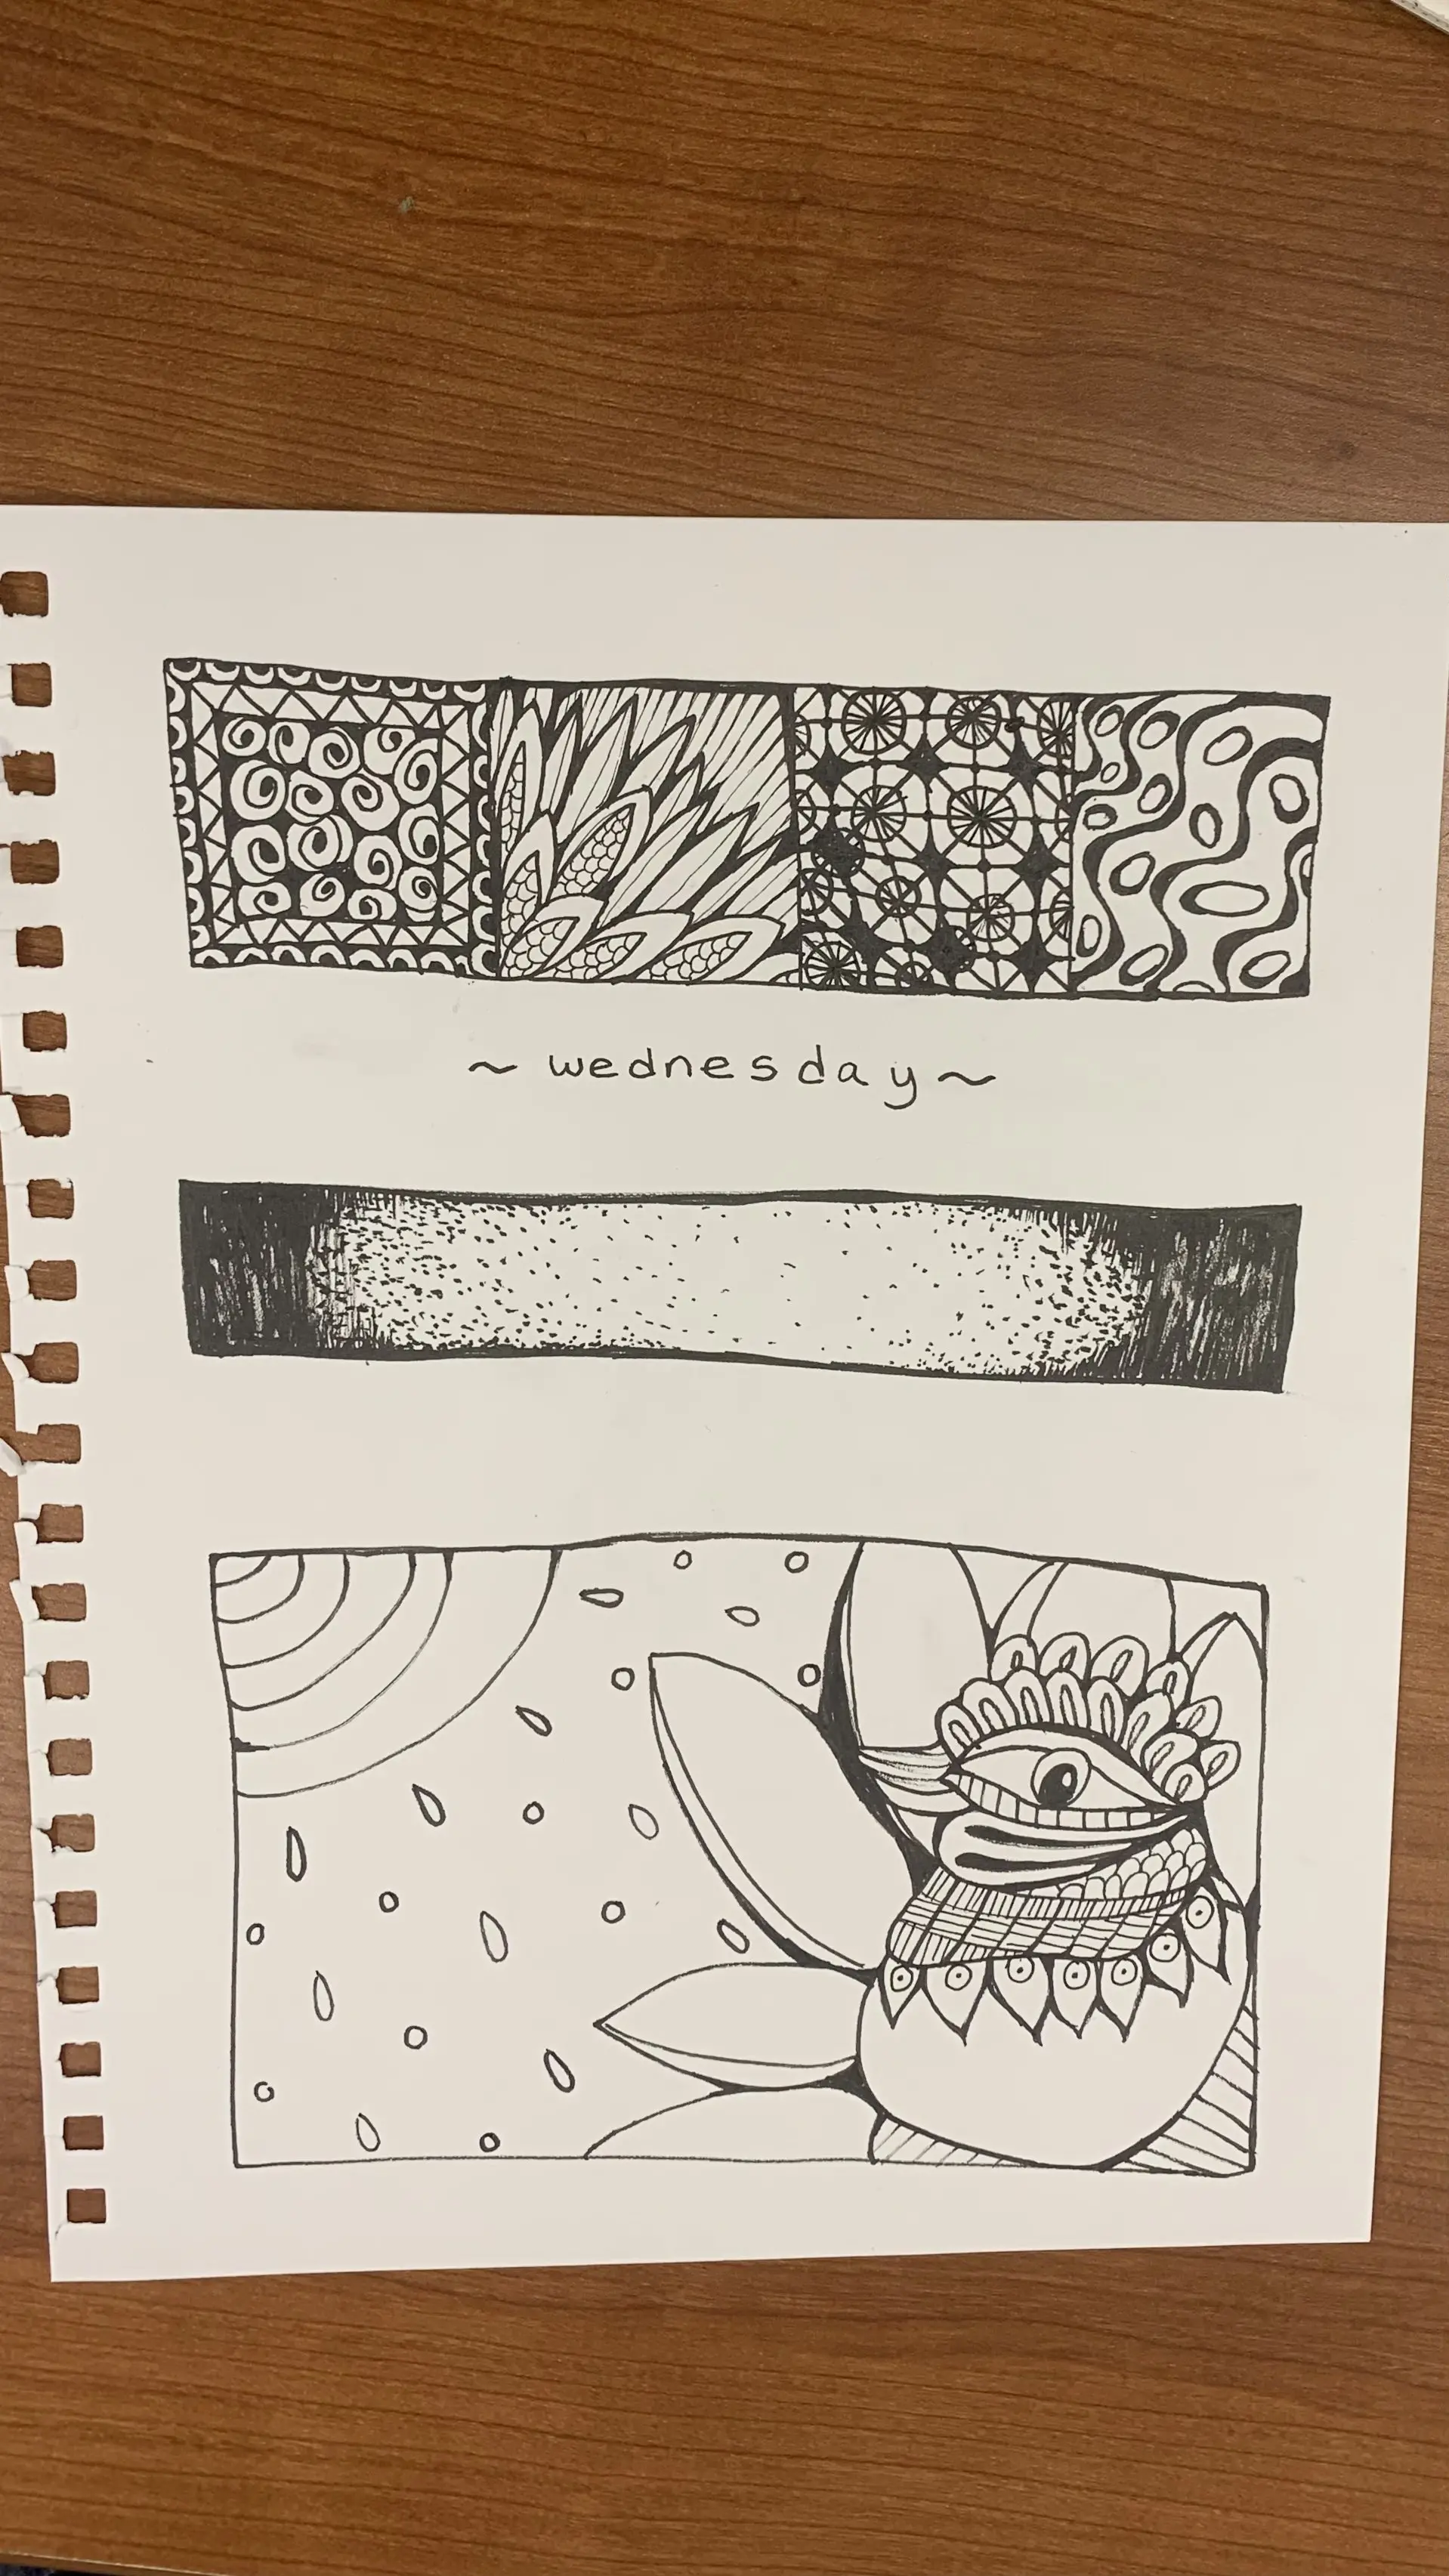 ~ wednesday ~